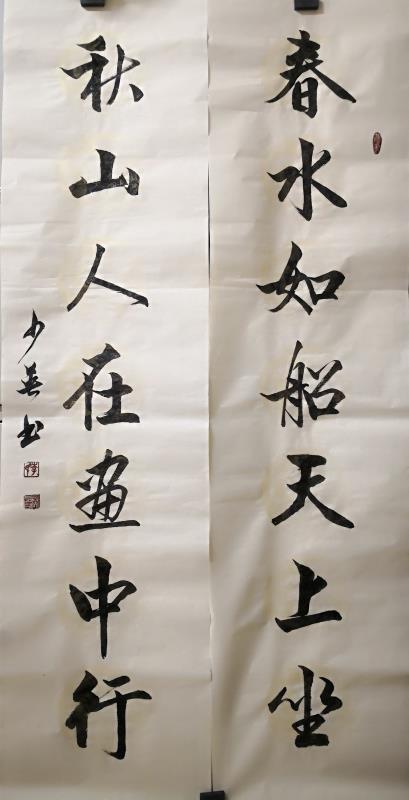 春水如船天上坐
秋山人在画中行
少英书